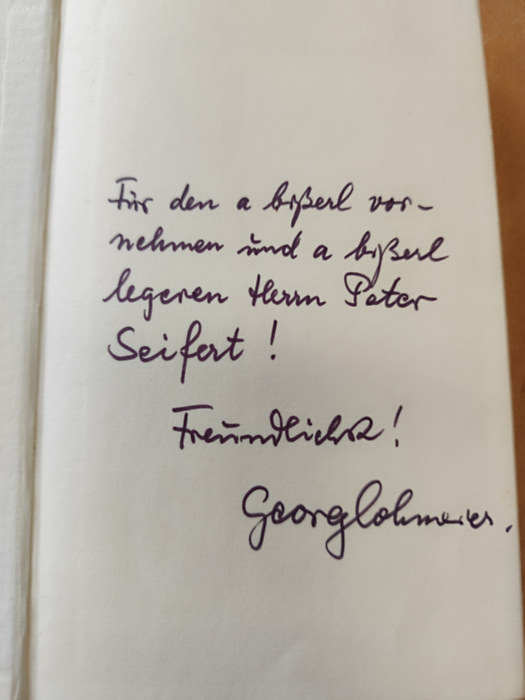 Für den a bißerl vor-
nehmen und a bißerl
legeren Herrn Peter
Seifert!
Freundlichst!
Georg Lohmeier.